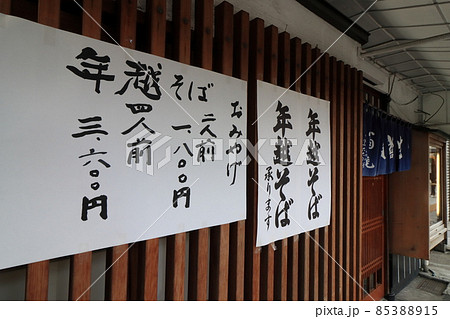 年越そば
おみやげ
二人前
一八〇〇円
四人前
三六〇〇円
年越そば
年越そば
承ります
pixta.jp - 85388915